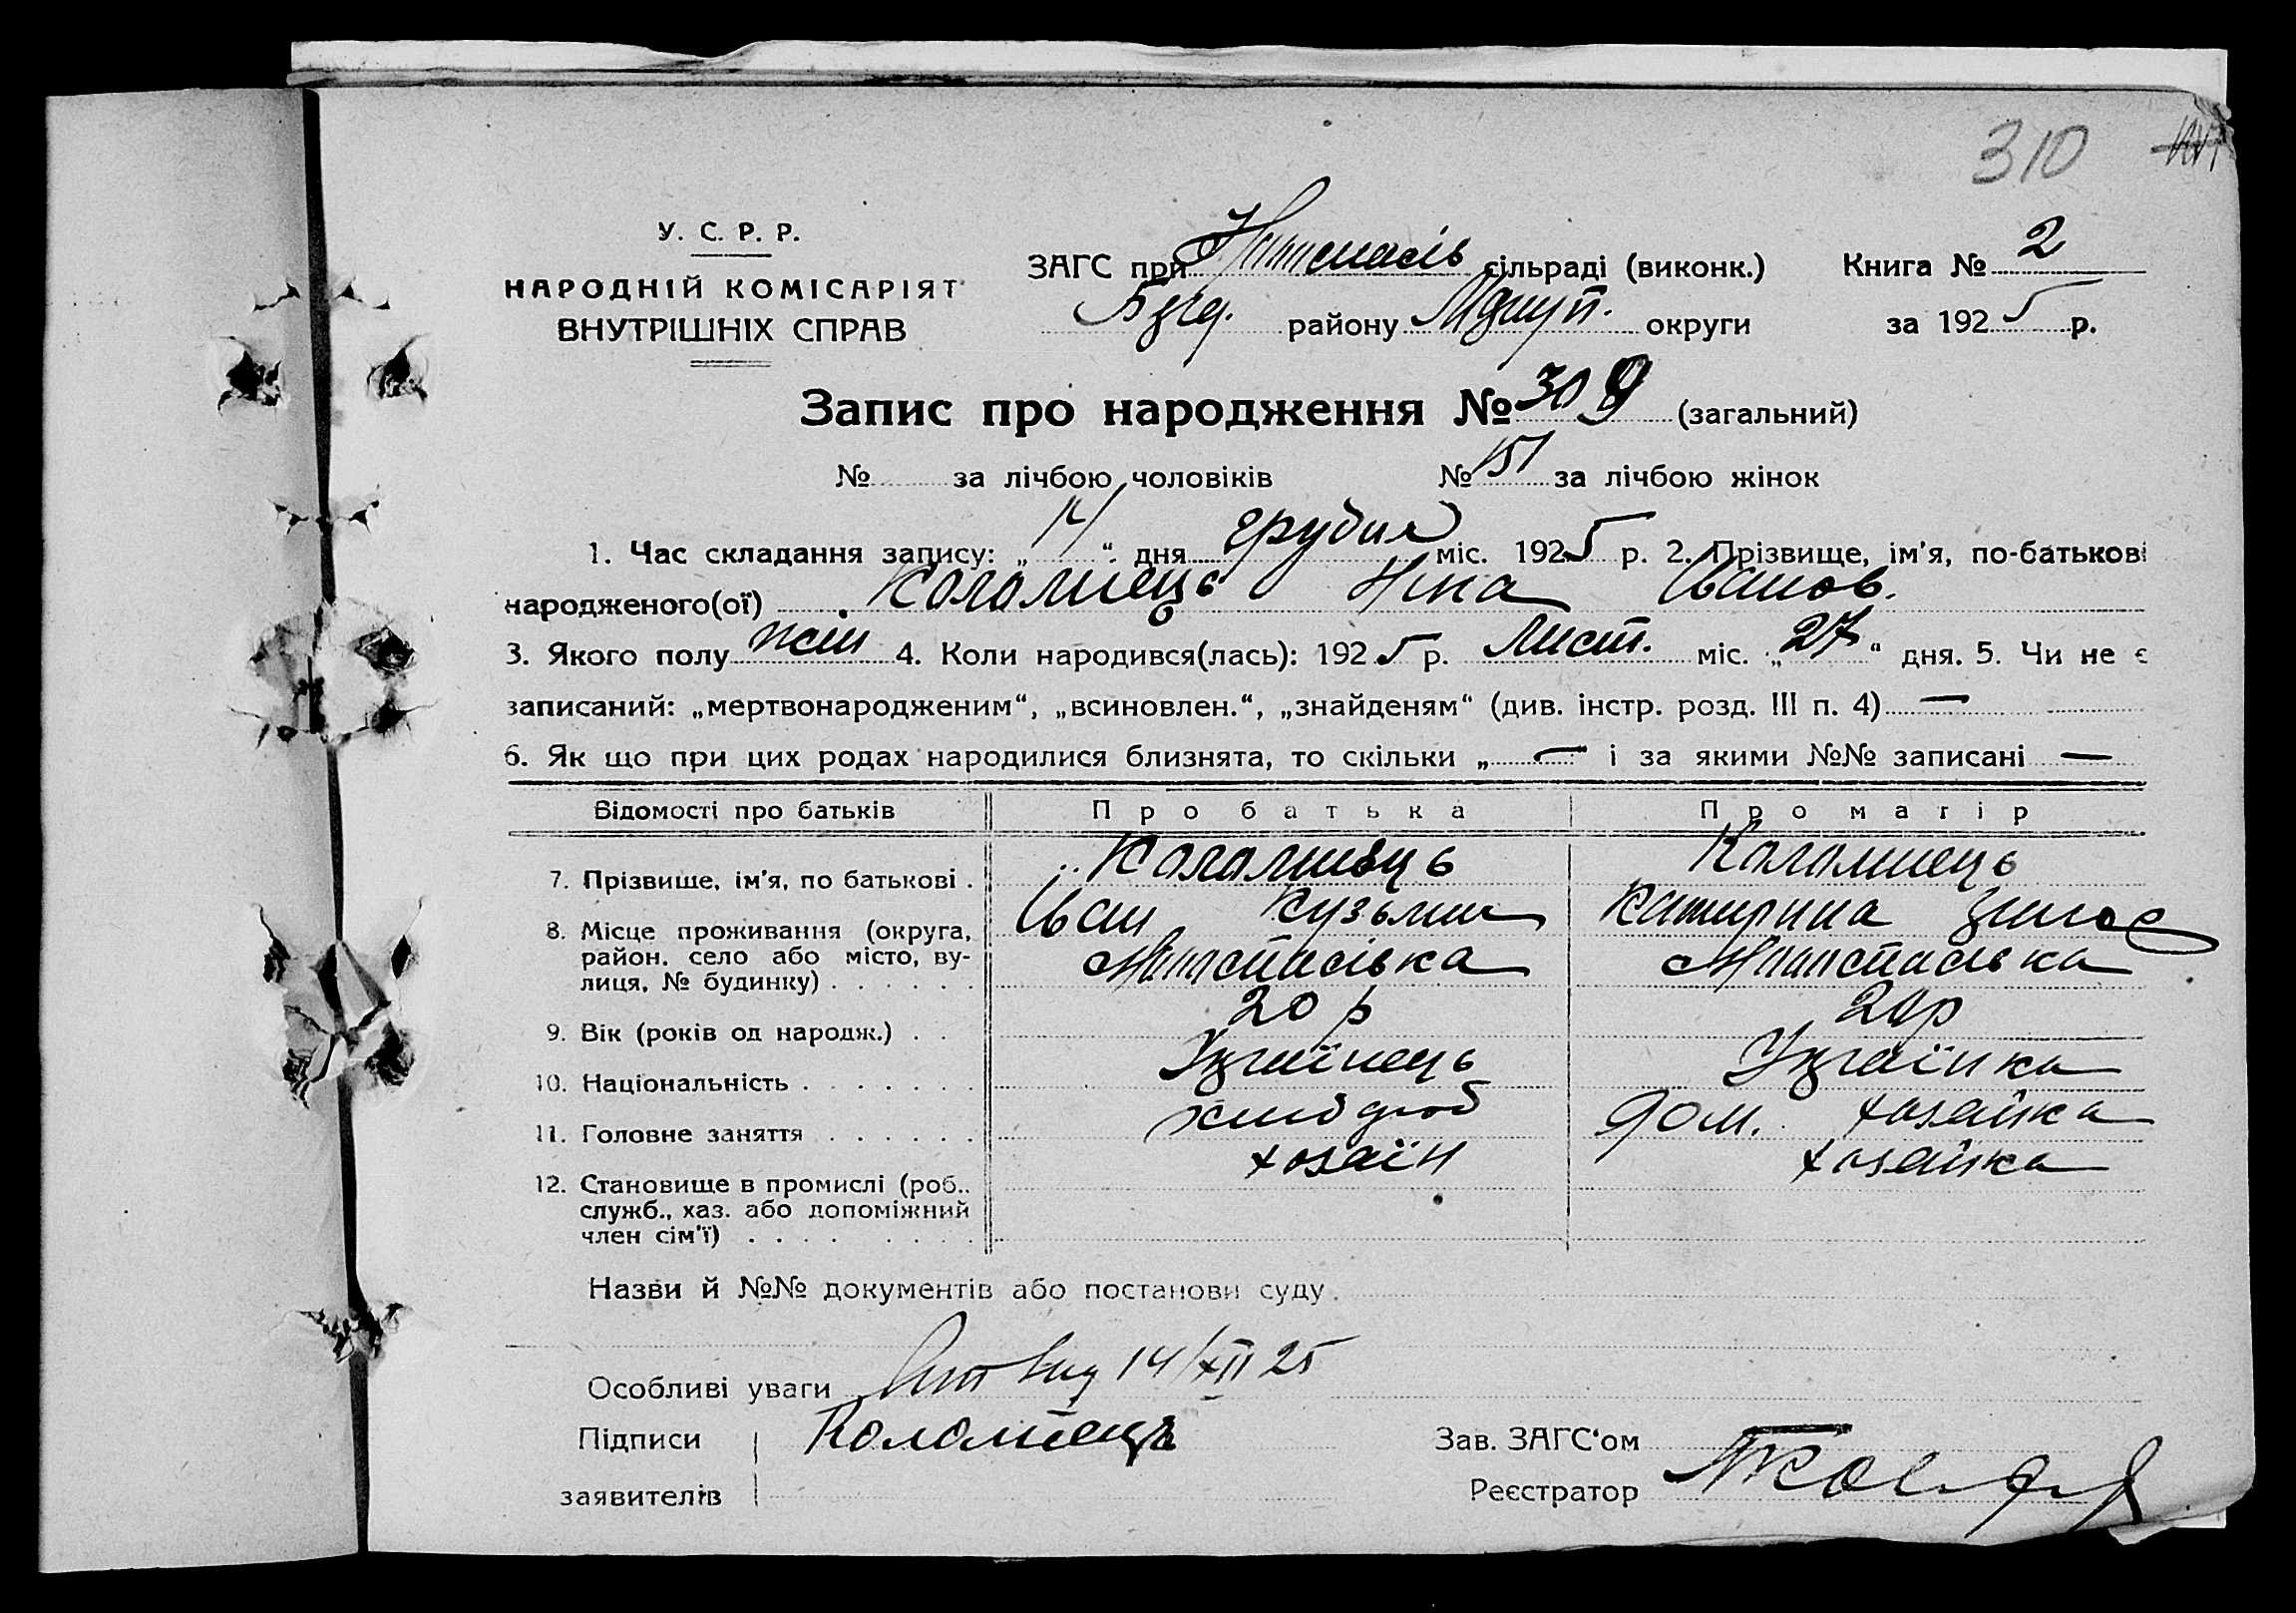 310
У. С. Р. Р.
НАРОДНІЙ КОМІСАРІЯТ
ВНУТРІШНІХ СПРАВ
ЗАГС при сільраді (виконк.) Книга № 2
району округи за 1925 р.
Запис про народження № 309 (загальний)
№ за лічбою чоловіків № 151 за лічбою жінок
1. Час складання запису: „14“ дня грудня міс. 1925 р. 2. Прізвище, ім'я, по-батькові
народженого(ої) Коломиець Ніна Іванов.
3. Якого полу жін 4. Коли народився(лась): 1925 р. Лист. міс. „27“ дня. 5. Чи не є
записаний: „мертвонародженим“, „всиновлен.“, „знайденям“ (див. інстр. розд. III п. 4) —
6. Як що при цих родах народилися близнята, то скільки „—“ і за якими №№ записані —
Відомості про батьків Про батька Про матір
7. Прізвище, ім'я, по батькові . Коломиець Коломиець
Іван Кузьмич Катерина
8. Місце проживання (округа, район, село або місто, вулиця, № будинку) . . . . . .
9. Вік (років од народж.) . . 20 р 20 р
10. Національність . . . . . . . Українець Українка
11. Головне заняття . . . . . . хлібороб Дом. хозяйка
12. Становище в промислі (роб., служб., хаз. або допоміжний член сім'ї) . . . . . . . . хозяїн хозяйка
Назви й №№ документів або постанови суду
Особливі уваги 14/XII 25
Підписи Коломиець Зав. ЗАГС'ом
заявителів Реєстратор